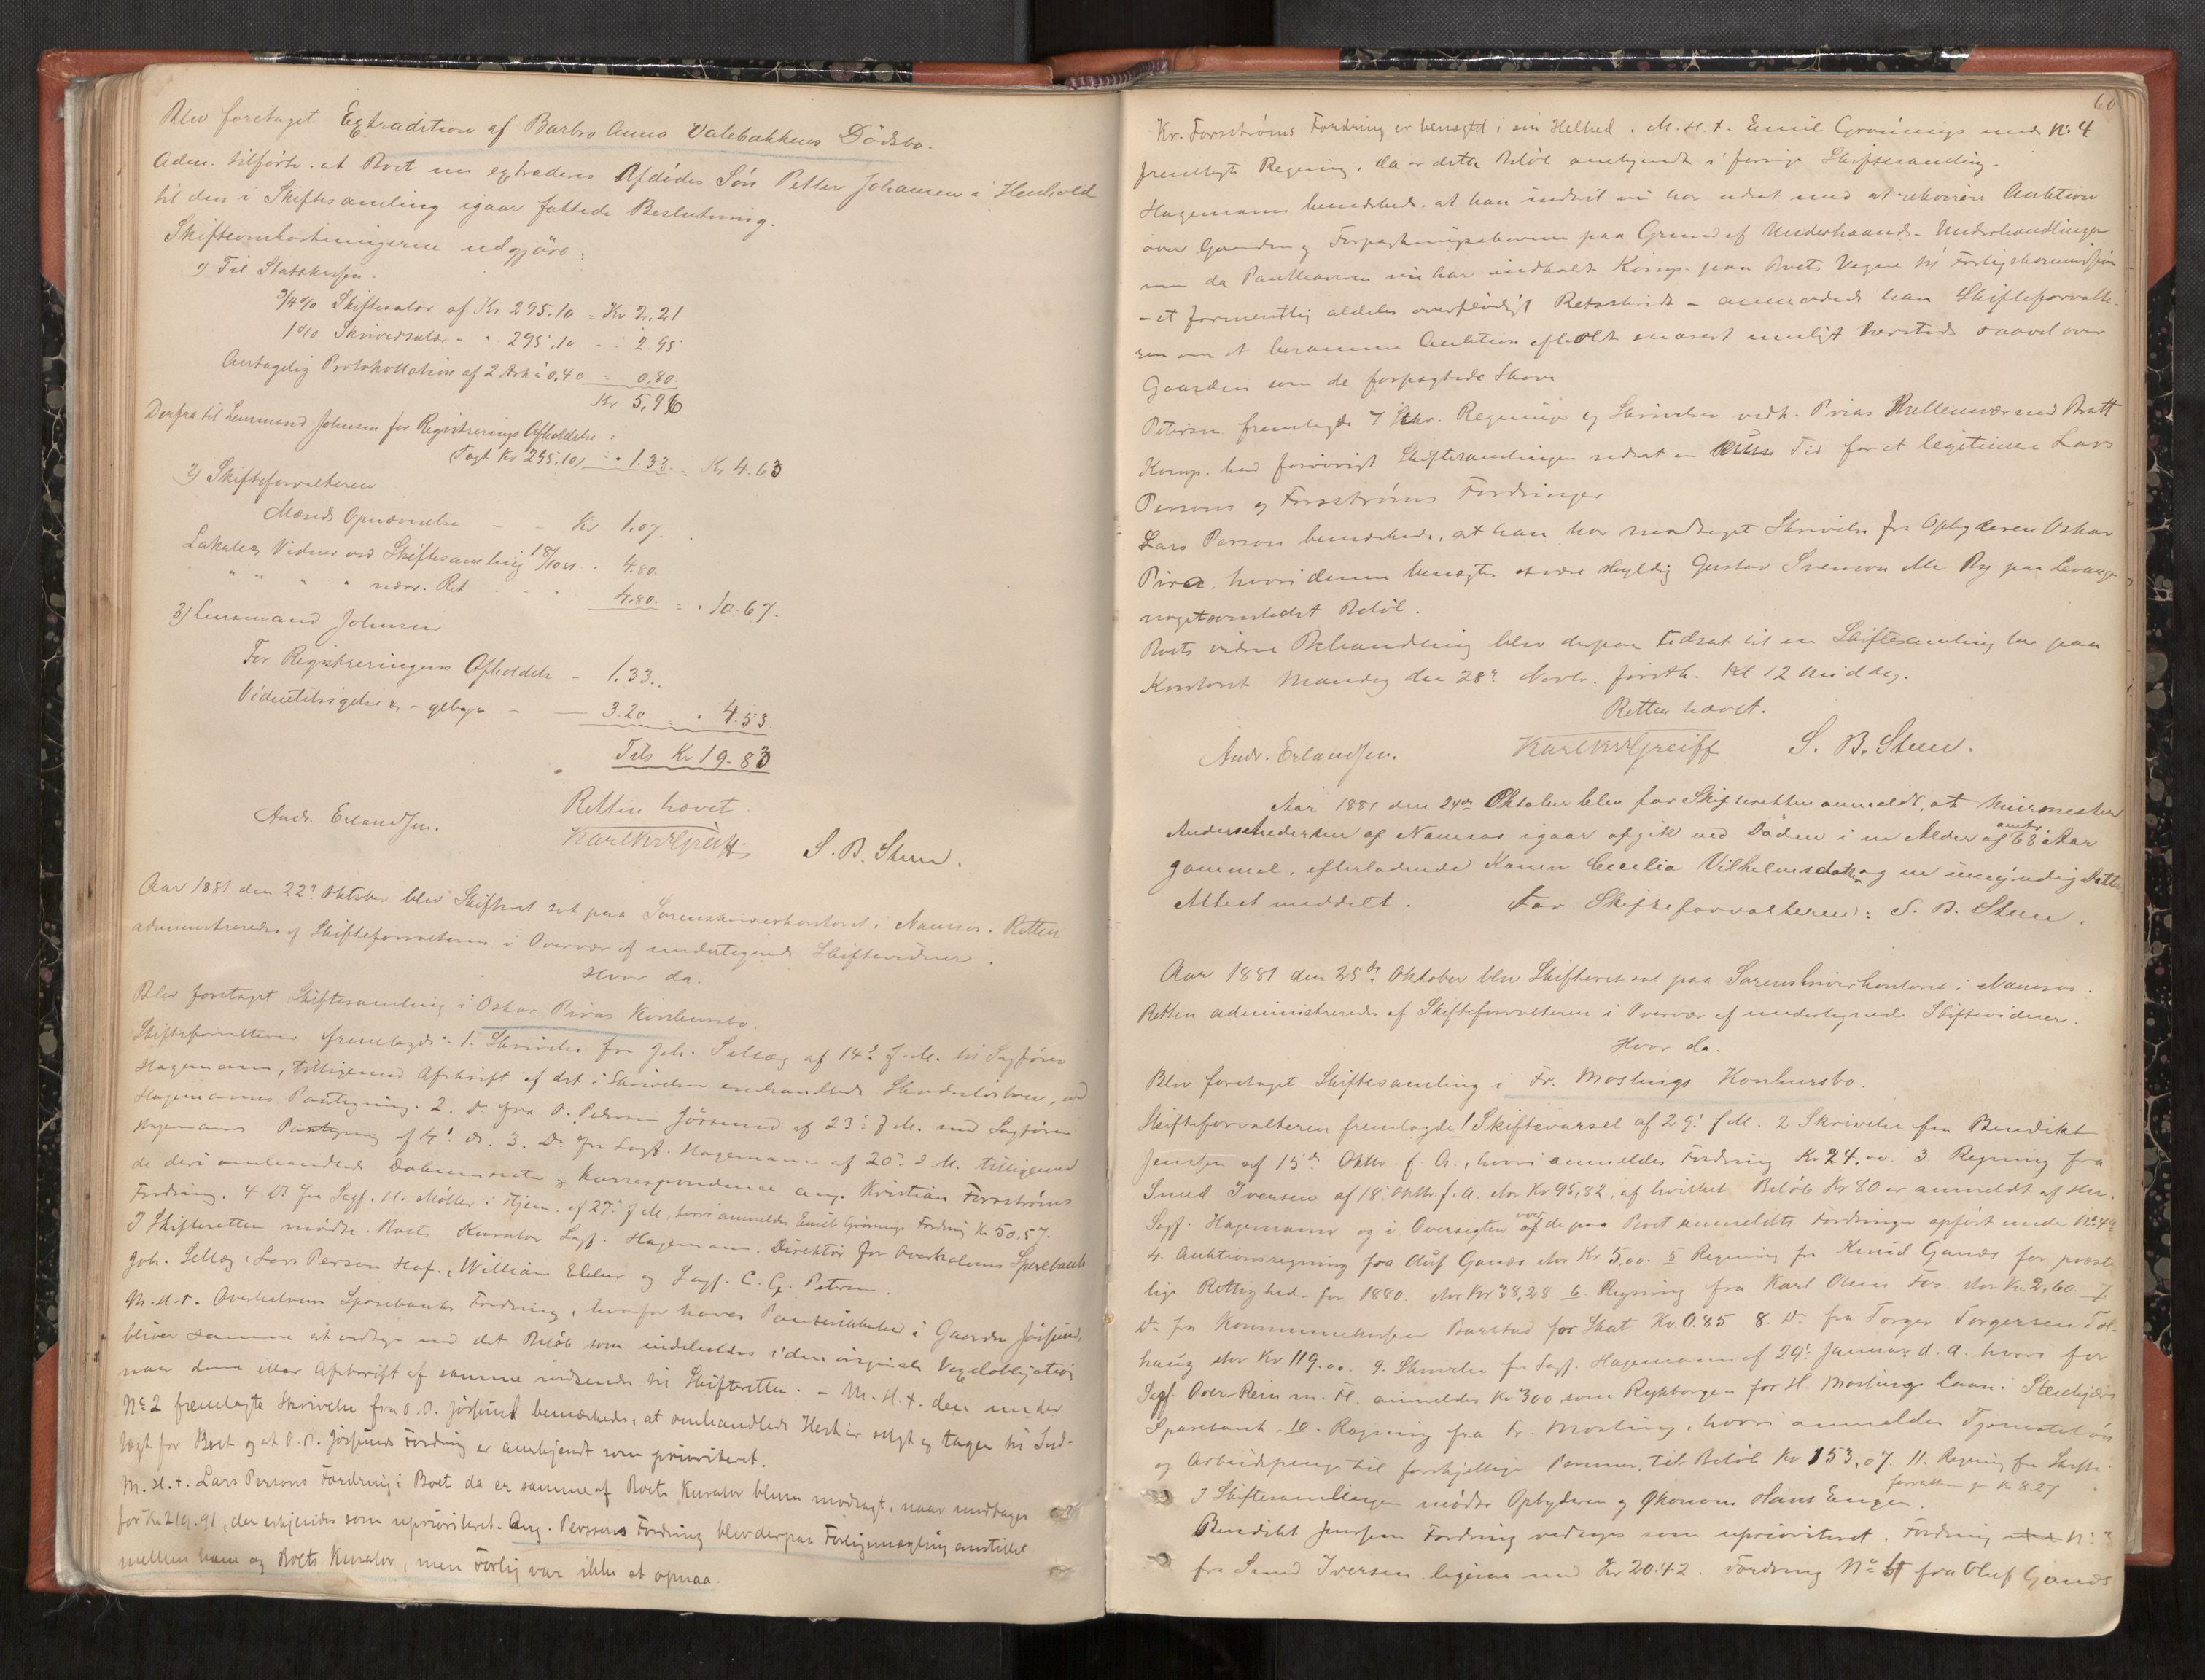 Blev foretaget Extradition af Barbro Anna Valebakkens Dödsbo.
Adm. tilförte, at Boet nu extraderes Afdödes Sön Petter Johansen i Henhold
til den i Skiftesamling igaar fattede Beslutning.
Skifteomkostningerne udgjöre:
1) Til Statskassen.
3/4 % Skiftesalær af Kr 295,10 = Kr 2,21
1 % Skriversalær - " 295,10 - : 2.95
Antagelig Protokollation af 2 Ark à 0,40 - 0,80.
Kr 5,96
Derfra til Lensmand Johnsen for Registrerings Afholdelse:
Taxt Kr 295,10, - 1.33. = Kr 4.63
2) Skifteforvalteren
Mænds Opnævnelse - - Kr 1.07.
Lokale og Vidner ved Skiftesamling 18/10 81 . 4.80.
" " " " nærv. Ret - - . 4.80. = . 10.67.
3) Lensmand Johnsen
For Registreringens Afholdelse - 1.33.
Vidnetilsigelse og -gebyr - - 3.20 . . 4.53.
Tils Kr 19.83
Retten hævet.
Andr. Erlandsen. Karl Kr Greiff S. B. Steen.
Aar 1881 den 22de Oktober blev Skifteret sat paa Sorenskriverkontoret i Namsos. Retten
administreredes af Skifteforvalteren i Overvær af undertegnede Skiftevidner.
Hvor da.
Blev foretaget Skiftesamling i Oskar Piras Konkursbo.
Skifteforvalteren fremlagde: 1. Skrivelse fra Joh. Sellæg af 14de f. M. til Sagförer
Hagemann, tilligemed Afskrift af det i Skrivelsen omhandlede Skadeslösbrev, med
Hagemanns Paategning. 2. Do fra O. Pedersen Jössund af 23de f. M. med Sagförer
Hagemanns Paategning af 4de ds. 3. Do fra Sagf. Hagemann af 20de d. M. tilligemed
de deri omhandlede Dokumenter og Korrespondence ang. Kristian Forsströms
Fordring. 4 Do fra Sagf. M. Möller i Hjem. af 27de f. M., hvori anmeldes Emil Grönings Fordring Kr 50.57.
I Skifteretten mödte Boets Kurator Sagf. Hagemann, Direktör for Overhalvens Sparebank
Joh. Sellæg, Lars Person Haf., William Ekker og Sagf. C. G. Petersen.
M. H. t. Overhalvens Sparebanks Fordring, hvorfor haves Pantesikkerhed i Gaarden Jössund,
bliver samme at vedtage med det Belöb som indeholdes i den originale Vexelobligation
naar denne eller Afskrift af samme indsendes til Skifteretten. - M. H. t. den under
No 2 fremlagte Skrivelse fra O. P. Jössund bemærkedes, at omhandlede Hest er solgt og tagen til Ind-
tægt for Boet og at O. P. Jössunds Fordring er anerkjendt som prioriteret.
M. H. t. Lars Persons Fordring i Boet da er samme af Boets Kurator bleven modsagt, naar undtages
for Kr 219.91, der erkjendes som uprioriteret. Ang. Perssons Fordring blev derpaa Forligsmægling anstillet
mellem ham og Boets Kurator, men Forlig var ikke at opnaa.
60
Kr. Forsströms Fordring er benægtet i sin Helhed. M. H. t. Emil Grönings under No 4
fremlagte Regning, da er dette Belöb anerkjendt i forrige Skiftesamling.
Hagemann bemærkede, at han indtil nu har udsat med at rekvirere Auktion
over Gaarden og Forpagtningsskovene paa Grund af Underhaands-Underhandlinger
men da Panthaveren nu har indkaldt Komp. paa Boets Vegne til Forligskommission
- et formentlig aldeles overflödigt Retsskridt - anmodede han Skifteforvalte-
ren om at beramme Auktion afholdt snarest muligt Herreds saavel over
Gaarden som de forpagtede Skove
Petersen fremlagde 7 Stkr. Regninger og Skrivelser vedk. Piras Mellemvær med Bratt
Komp. bad forövrigt Skiftesamlingen udsat en Tid for at legitimere Lars
Persons og Forsströms Fordringer
Lars Person bemærkede, at han har modtaget Skrivelse fra Opbyderen Oskar
Pira, hvori denne benægter at være skyldig Gustav Svenson Alle By paa Levanger
nogetsomhelst Belöb.
Boets videre Behandling blev derpaa udsat til en Skiftesamling her paa
Kontoret Mandag den 28de Novbr. förstk. Kl 12 Middag.
Retten hævet.
Andr. Erlandsen. Karl Kr Greiff S. B. Steen.
Aar 1881 den 24de Oktober blev for Skifteretten anmeldt, at Murmester
Anders Andersen af Namsos igaar afgik ved Döden i en Alder af omtr. 68 Aar
gammel, efterladende Konen Cecilia Vilhelmsdatter og en umyndig Datter
Attest meddelt. For Skifteforvalteren: S. B. Steen.
Aar 1881 den 25de Oktober blev Skifteret sat paa Sorenskriverkontoret i Namsos.
Retten administreredes af Skifteforvalteren i Overvær af undertegnede Skiftevidner.
Hvor da.
Blev foretaget Skiftesamling i Fr. Moslings Konkursbo.
Skifteforvalteren fremlagde 1 Skiftevarsel af 29de f. M. 2 Skrivelse fra Bendikt
Jensen af 15de Oktbr. f. A., hvori anmeldes Fordring Kr 24,00. 3. Regning fra
Smed Iversen af 18de Oktbr f. A. stor Kr 95,82, af hvilket Belöb Kr 80 er anmeldt af Hr.
Sagf. Hagemann og i Oversigten over de paa Boet anmeldte Fordringer opfört under No 49
4. Auktionsregning fra Oluf Ganæs stor Kr 5,00. 5 Regning fra Knud Ganæs for præste-
lige Rettigheder for 1880. stor Kr 38,28 6. Regning fra Karl Olsen Fos. stor Kr 2,60. 7
Do fra Kommunekassen Barstad for Skat Kr 0.85 8. Do fra Torger Torgersen Tol-
haug stor Kr 119.00. 9. Skrivelse fra Sagf. Hagemann af 29de Januar d. A. hvori for
Sagf. Over-Rein m. Fl. anmeldes Kr 300 som Rykborgen for H. Moslings Laan i Stenkjærs
Sparebank. 10. Regning fra Fr. Mosling, hvori anmeldes Tjenestelön
og Arbeidspenge til forskjellige Personer, tils. Belöb Kr 153,07. 11. Regning fra Skifte-
forvalteren Kr 8.27
I Skiftesamlingen mödte Opbyderen og Økonom Hans Engen.
Bendikt Jensens Fordring vedtages som uprioriteret. Fordring No 3
fra Smed Iversen ligesaa med Kr 20.42. Fordring No 4 fra Oluf Ganæs